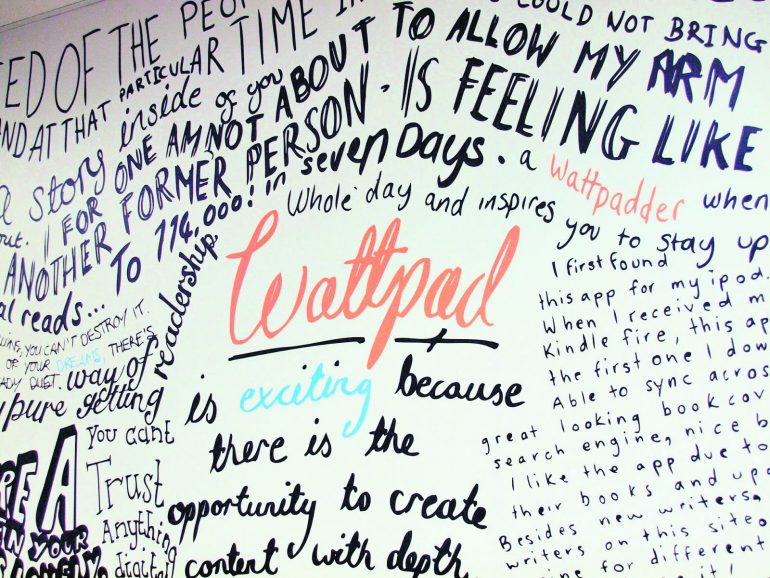 ED OF THE PEOP
TIME IN
COULD NOT BRING
AND AT THAT PARTICULAR
TO ALLOW MY ARM
a story inside of you
FOR ONE AM NOT ABOUT
IS FEELING LIKE
out. I
ANOTHER FORMER PERSON.
TO 114,000! in seven Days.
a Wattpadder when
al reads...
Whole day and inspires
you to stay up
Wattpad
is exciting because
there is the
opportunity to create
content with depth
I first found
this app for my ipod.
When I received m
Kindle fire, this ap
the first one I dow
Able to sync acros
great looking book cov
search engine, nice b
I like the app due to
their books and upd
Besides new writers,
writers on this site
for different
YOU CAN'T DESTROY IT.
OF YOUR DREAMS, THERE'S
QUIET.
way of readership
pure getting
You cant
Trust
Anything
digital
RE A
YOUR